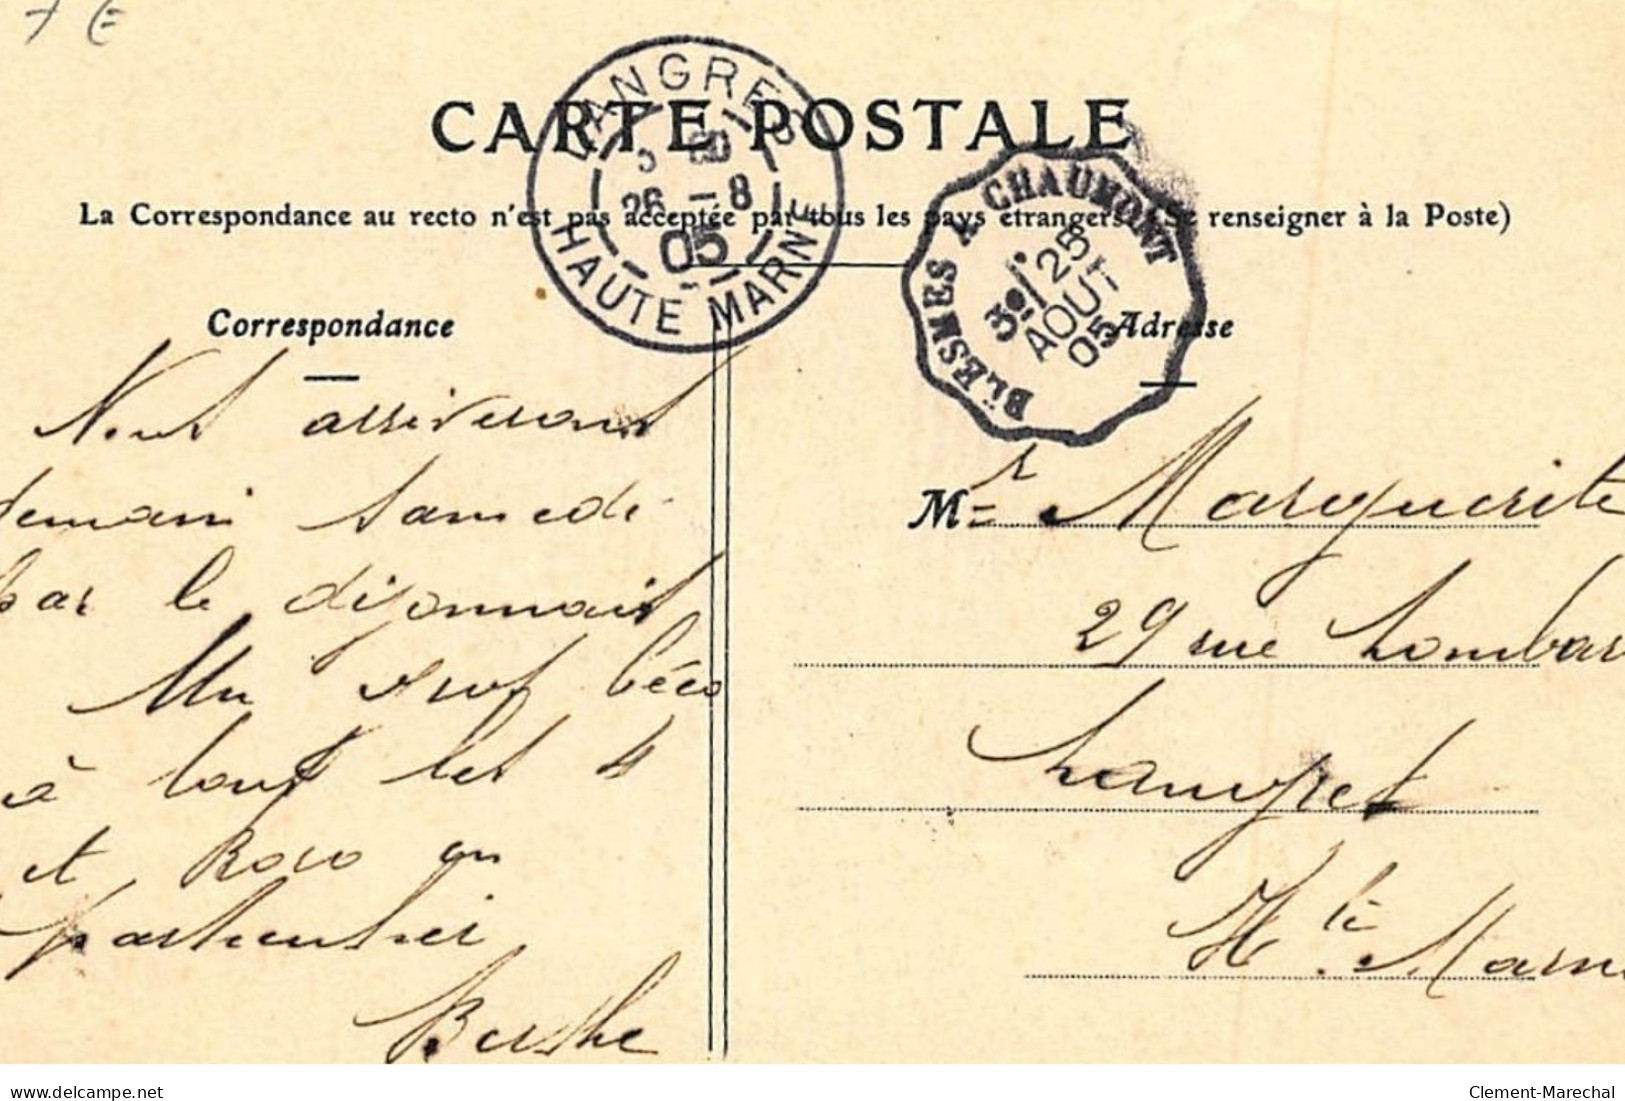 7 E
CARTE POSTALE
LANGRES
HAUTE MARNE
26 - 8
05
BLESMES A CHAUMONT
3º
25
AOUT
05
La Correspondance au recto n'est pas acceptée par tous les pays étrangers. (Se renseigner à la Poste)
Correspondance
Nous arriverons
demain samedi
par le dijonnais
Un gros béco
à tous les 4
et Roro en
particulier
Berthe
Adresse
M r Marguerite
29 rue Lombar
Langres
Hte Marn
delcampe.net
Clement-Marechal